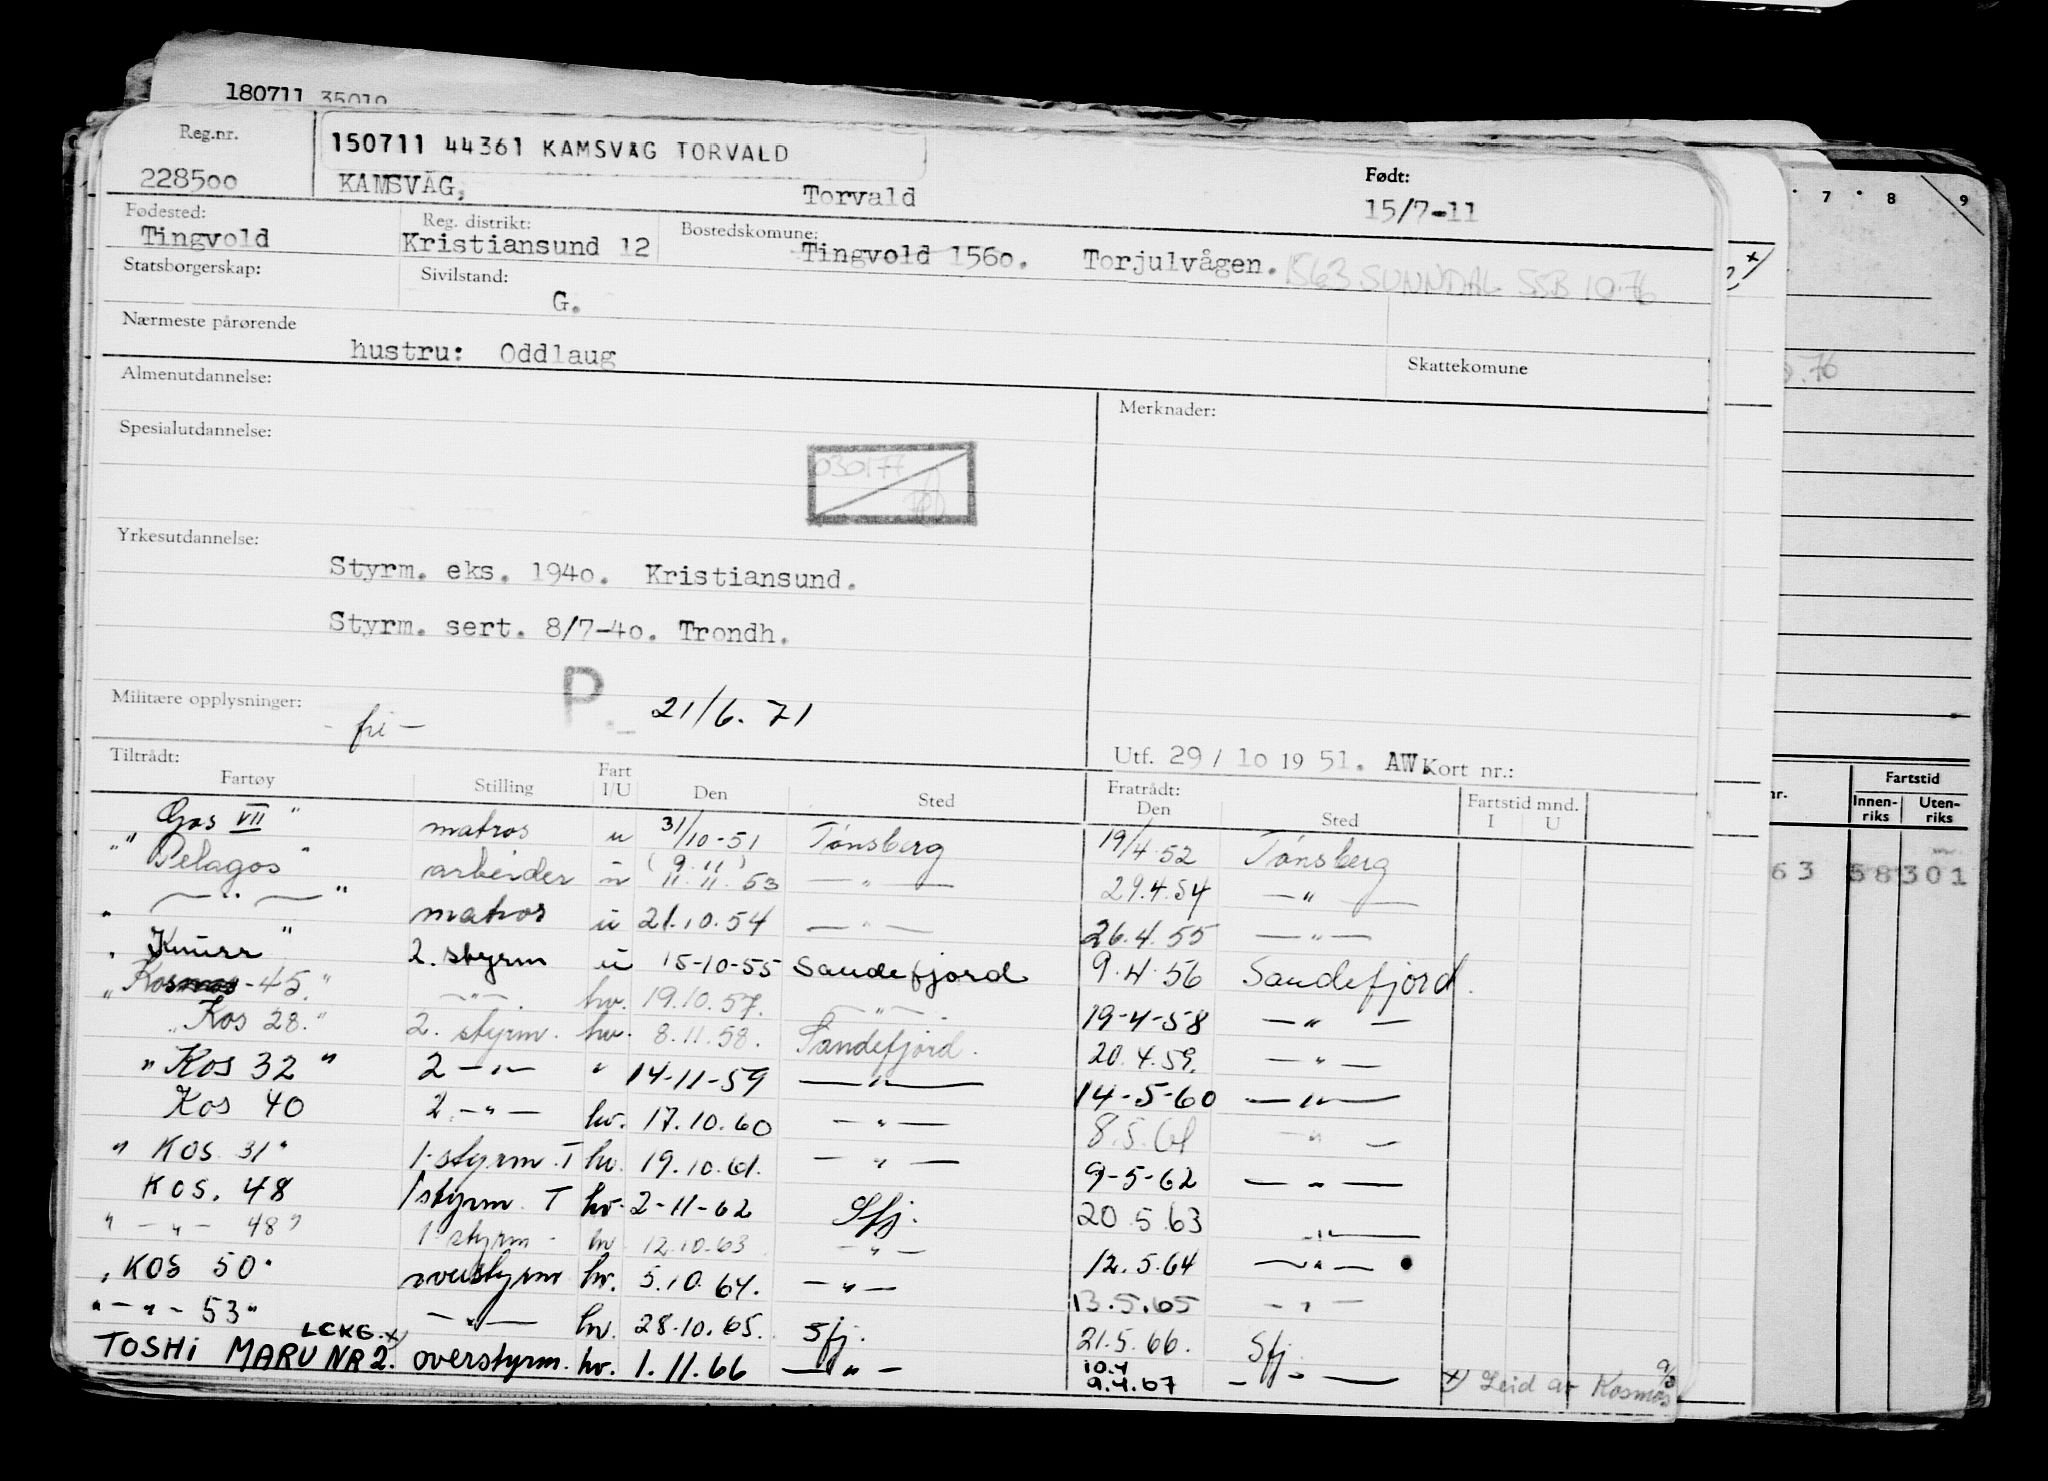 180711 35019
Reg.nr.
150711 44361 KAMSVÅG TORVALD
228500
KAMSVÅG, Torvald
Født:
15/7-11
Fødested:
Tingvold
Reg. distrikt:
Kristiansund 12
Bostedskomune:
Tingvold 1560. Torjulvågen. 1563 SUNNDAL SSB 10.76
Statsborgerskap:
Sivilstand:
G.
Nærmeste pårørende
hustru: Oddlaug
Skattekomune
Almenutdannelse:
Merknader:
Spesialutdannelse:
030177
Yrkesutdannelse:
Styrm. eks. 1940. Kristiansund.
Styrm. sert. 8/7-40. Trondh.
P. 21/6.71
Militære opplysninger:
- fri -
Utf. 29 / 10 19 51. AW. Kort nr.:
Tiltrådt:
Fratrådt:
Fartøy Stilling Fart I/U Den Sted Den Sted Fartstid mnd. I U
Gos VII " matros u 31/10-51 Tønsberg 19/4.52 Tønsberg
" Pelagos " arbeider u (9.11) 11.11.53 — " — 29.4.54 — " —
— " — " matros u 21.10.54 — " — 26.4.55 — " —
" Knurr " 2. styrm u 15-10-55 Sandefjord 9.4.56 Sandefjord.
" Kosmos -45." — " —. hv. 19.10.57. — " —. 19-4-58 — " —
" Kos 28." 2. styrm. hv. 8.11.58. Sandefjord. 20.4.59. — " —
" Kos 32 " 2 — " — " 14-11-59 — " — 14-5-60 — " —
Kos 40 2. — " — hv. 17.10.60 — " — 8.5.61 — " —
" KOS 31" 1. styrm. T hv. 19.10.61. — " — 9-5-62 — " —
KOS. 48 1 styrm. T hv. 2-11-62 Sfj. 20.5.63 — " —
" — " — 48" 1. styrm. hv. 12.10.63 — " — 12.5.64 — " —
" KOS 50" overstyrm hv. 5.10.64. — " — 13.5.65 — " —
" — " — 53" — " — hv. 28.10.65. Sfj. 21.5.66. Sfj.
LCKG. x)
TOSHI MARU NR 2. overstyrm. hv. 1.11.66 — " — 10.4 9.4.67 — " — x) Leid av Kosmos %
7 8 9
x)
.76
nr.
Fartstid
Innen-riks
Uten-riks
63 58301